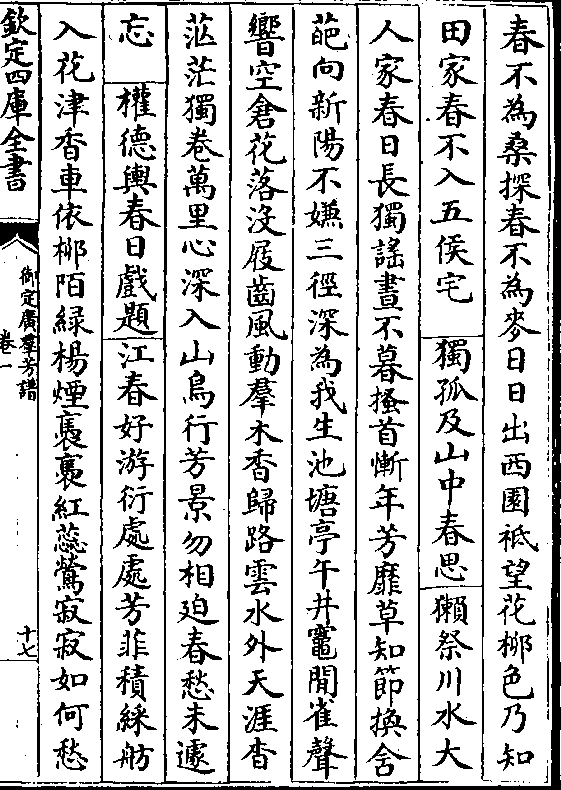 春不為桑探春不為麥日日出西園祗望花柳色乃知
田家春不入五侯宅 獨孤及山中春思 獺祭川水大
人家春日長獨謡晝不暮搔首慚年芳靡草知節換含
葩向新陽不嫌三徑深為我生池塘亭午井竈閒雀聲
響空倉花落没屐齒風動羣木香歸路雲水外天涯杳
茫茫獨卷萬里心深入山鳥行芳景勿相迫春愁未遽
忘 權德輿春日戲題 江春好游衍處處芳菲積綵舫
入花津香車依柳陌緑楊煙裊裊紅蕊鶯寂寂如何愁
欽定四庫全書
御定廣羣芳譜
卷一
十七